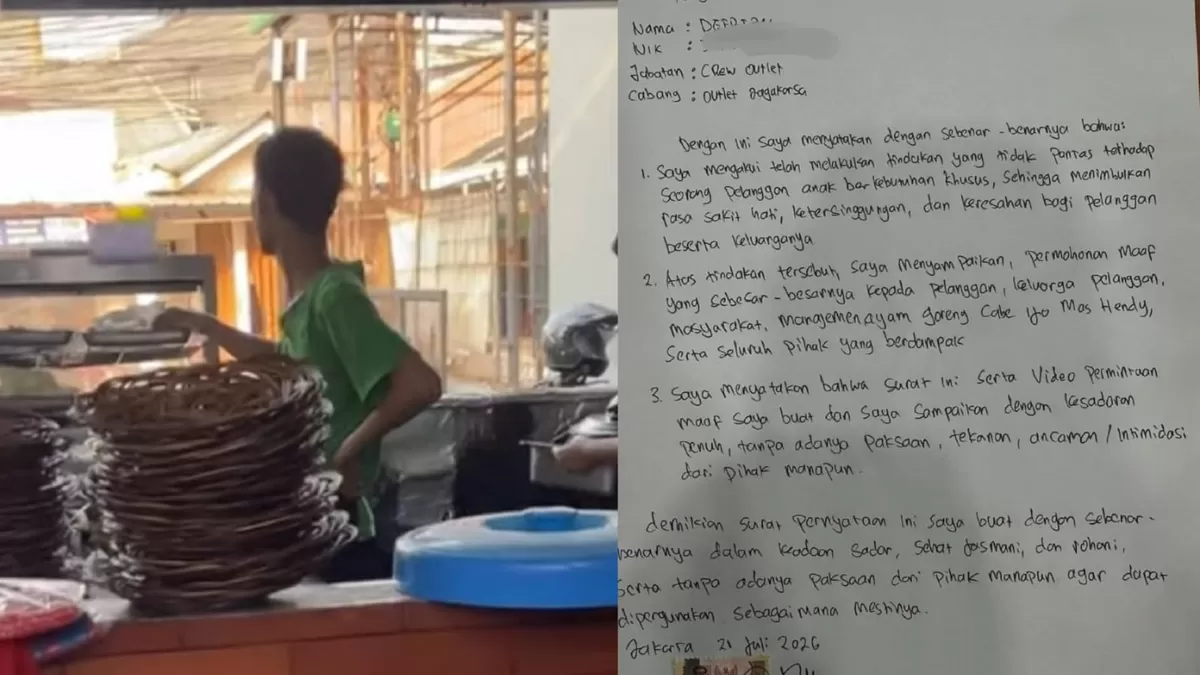 Nama :
Nik :
Jabatan : Crew Outlet
Cabang : Outlet Jagakarsa
Dengan Ini Saya menyatakan dengan sebenar-benarnya bahwa:
1. Saya mengakui telah melakukan tindakan yang tidak pantas terhadap
Seorang pelanggan anak berkebutuhan khusus, sehingga menimbulkan
rasa sakit hati, ketersinggungan, dan keresahan bagi pelanggan
beserta keluarganya
2. Atas tindakan tersebut, saya menyampaikan, permohonan maaf
yang sebesar-besarnya kepada pelanggan, keluarga pelanggan,
masyarakat, manajemen Ayam goreng Cabe Ijo Mas Hendy,
Serta seluruh pihak yang berdampak
3. Saya menyatakan bahwa surat Ini Serta Video permintaan
maaf saya buat dan saya sampaikan dengan kesadaran
penuh, tanpa adanya paksaan, tekanan, ancaman / Intimidasi
dari pihak manapun.
demikian surat pernyataan Ini saya buat dengan sebenar-
benarnya dalam keadaan sadar, sehat jasmani, dan rohani,
Serta tanpa adanya paksaan dari pihak manapun agar dapat
dipergunakan Sebagaimana mestinya.
Jakarta 21 Juli 2026